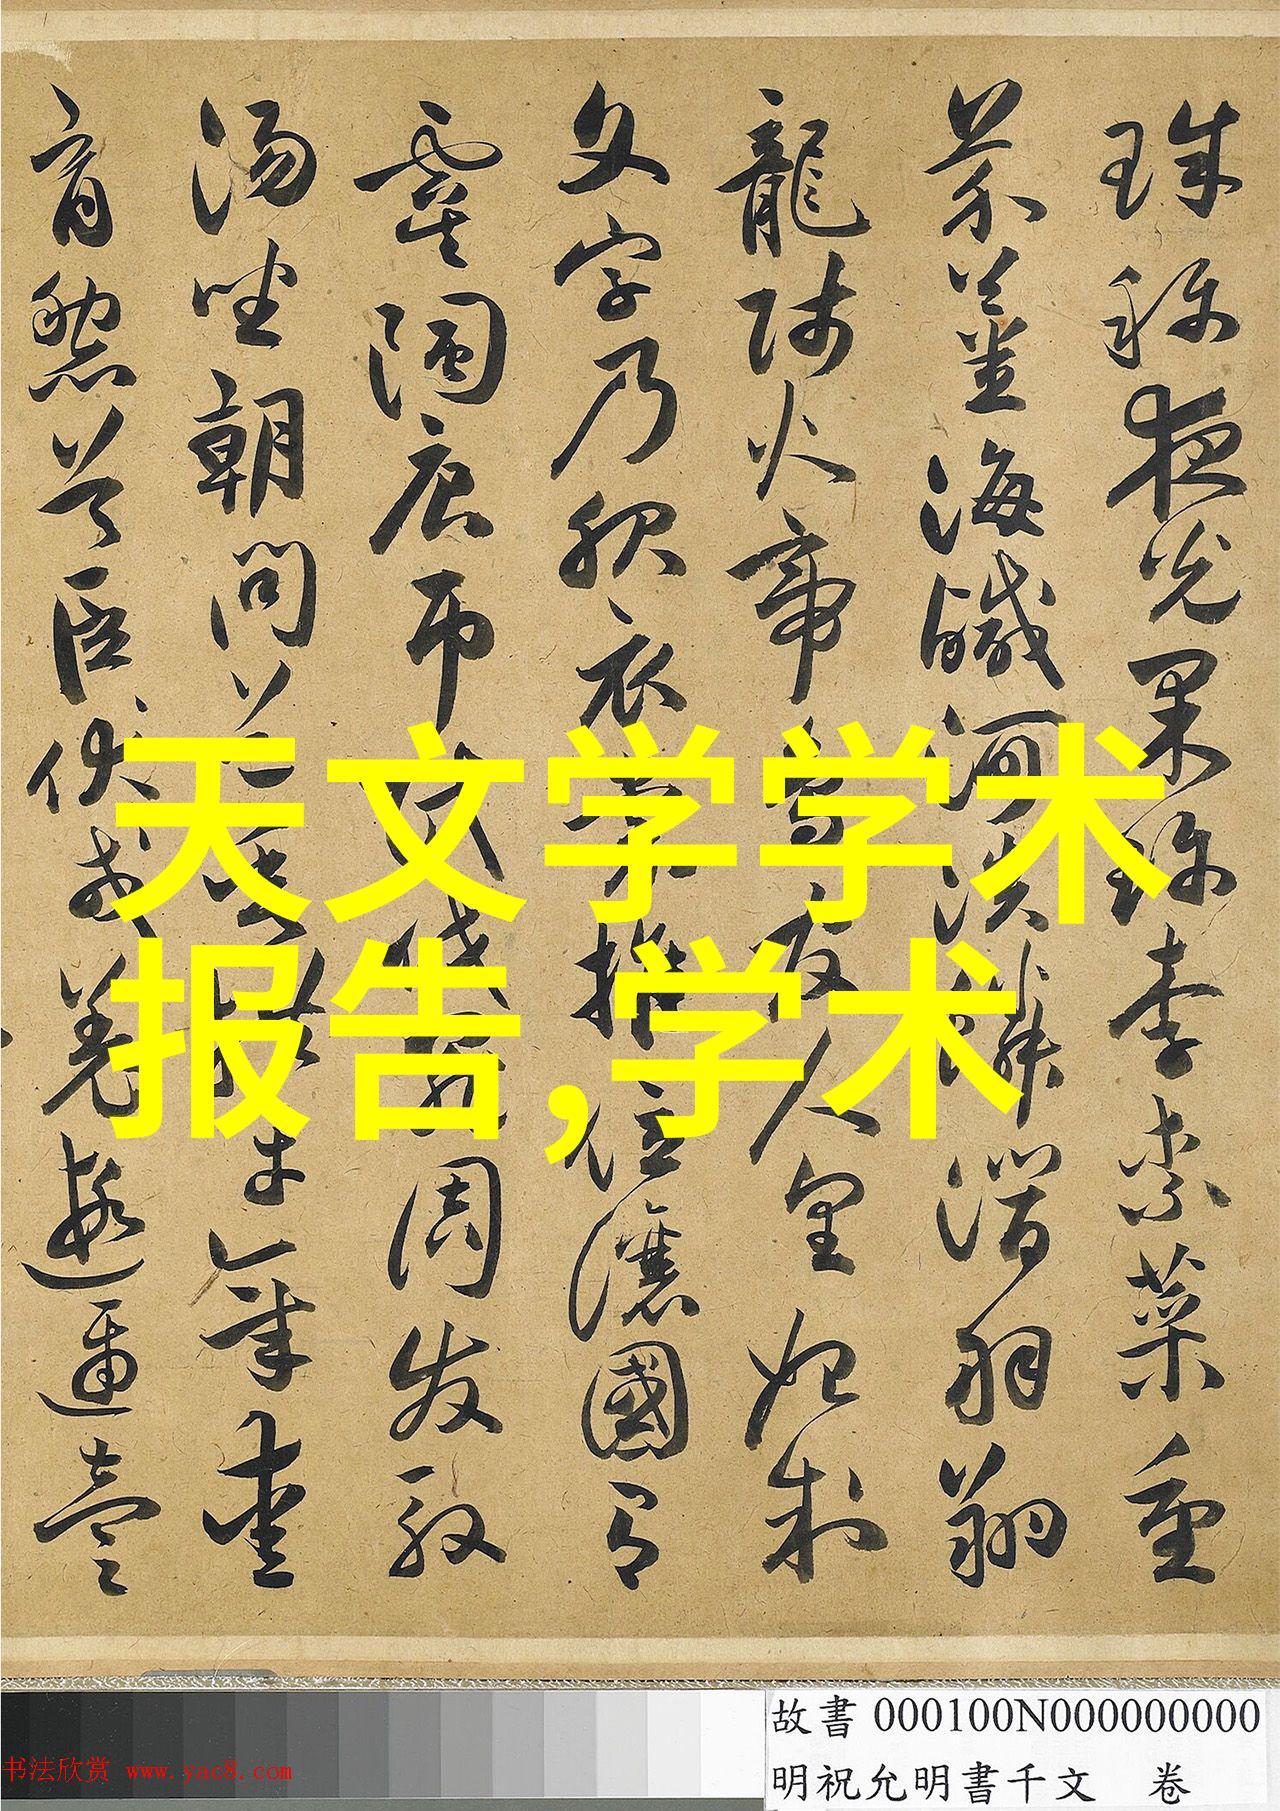 珠称夜光果珍李柰菜重
芥薑海鹹河淡鱗潛羽翔
龍師火帝鳥官人皇始制
文字乃服衣裳推位讓國有
虞陶唐弔民伐罪周發殷
湯坐朝問道垂拱平章愛
育黎首臣伏戎羌遐邇壹
天文学学术
报告,学术
故書 000100N000000000
明祝允明書千文 卷
书法欣赏 www.yac8.com